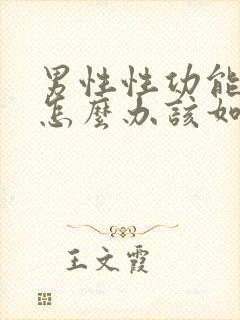 男性性功能
怎麼办該如
王文霞